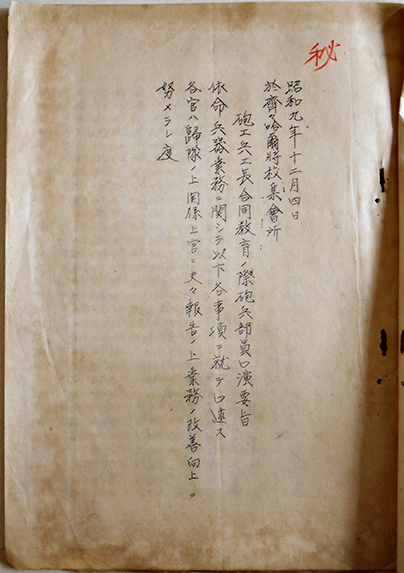 秘
昭和九年十二月四日
於齊々哈爾將校集會所
砲工兵工長合同教育ノ際砲兵部員口演要旨
依命兵器業務ニ関シテ以下各事項ニ就テ口述ス
各官ハ歸隊ノ上関係上官ニ夫々報告ノ上業務ノ改善向上ニ
努メラレ度